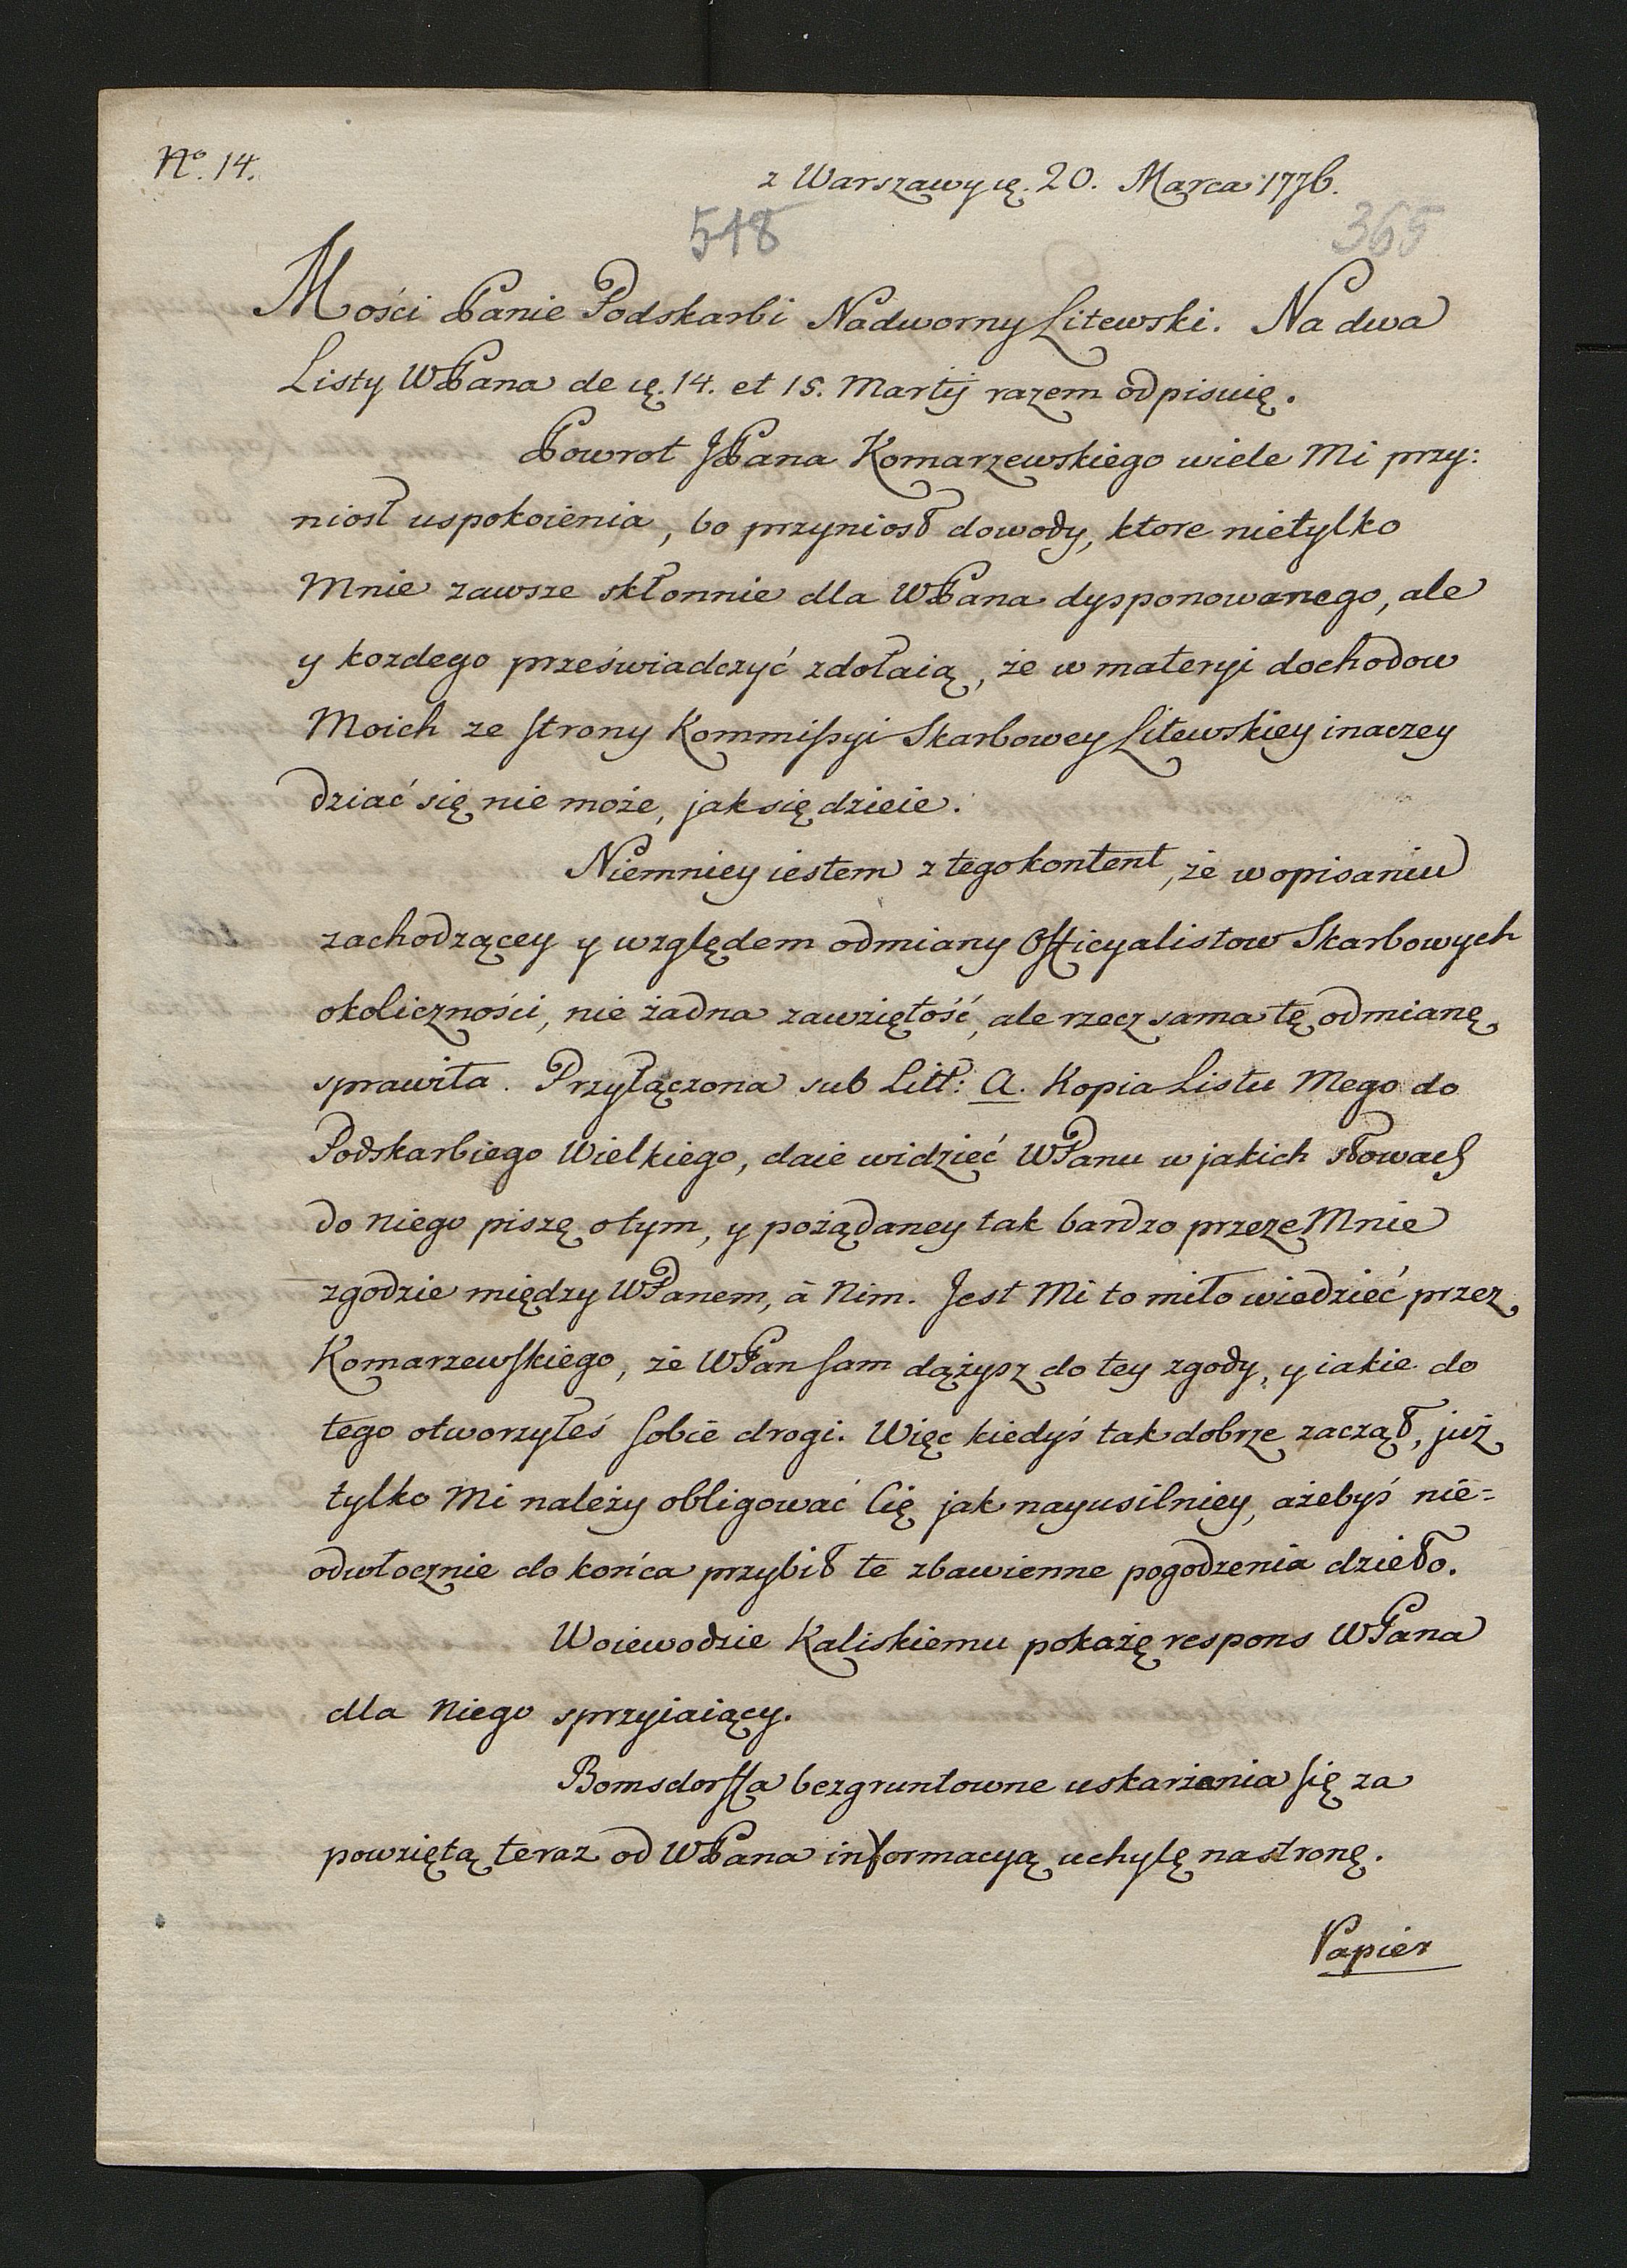 No. 14.
z Warszawy ię. 20. Marca 1776.
518 365
Mości Panie Podskarbi Nadworny Litewski. Na dwa
Listy WPana de ię. 14. et 15. Martij razem odpisuię.
Powrot JPana Komarzewskiego wiele Mi przy:
niosł uspokoienia, bo przyniosł dowody, ktore nietylko
Mnie zawsze skłonnie dla WPana dysponowanego, ale
y kozdego przeświadczyć zdołaią, że w materyi dochodow
Moich ze strony Kommissyi Skarbowey Litewskiey inaczey
dziać się nie może, jak się dzieie.
Niemniey iestem z tego kontent, że w opisaniu
zachodzącey y względem odmiany Officyalistow Skarbowych
okoliczności, nie żadna zawziętość, ale rzecz sama tę odmianę
sprawiła. Przyłączona sub Litt: A. Kopia Listu Mego do
Podskarbiego Wielkiego, daie widzieć WPanu w jakich słowach
do Niego piszę o tym, y pożądaney tak bardzo przeze Mnie
zgodzie między WPanem, à Nim. Jest Mi to miło wiedzieć przez
Komarzewskiego, że WPan sam dążysz do tey zgody, y iakie do
tego otworzyłeś sobie drogi. Więc kiedyś tak dobrze zaczął, już
tylko Mi należy obligować Cię jak nayusilniey, ażebyś nie=
odwłocznie do końca przybił te zbawienne pogodzenia dzieło.
Woiewodzie Kaliskiemu pokażę respons WPana
dla Niego sprzyiaiący.
Bomsdorffa bezgruntowne uskarżania się za
powziętą teraz od WPana informacyą uchylę na stronę.
Papier